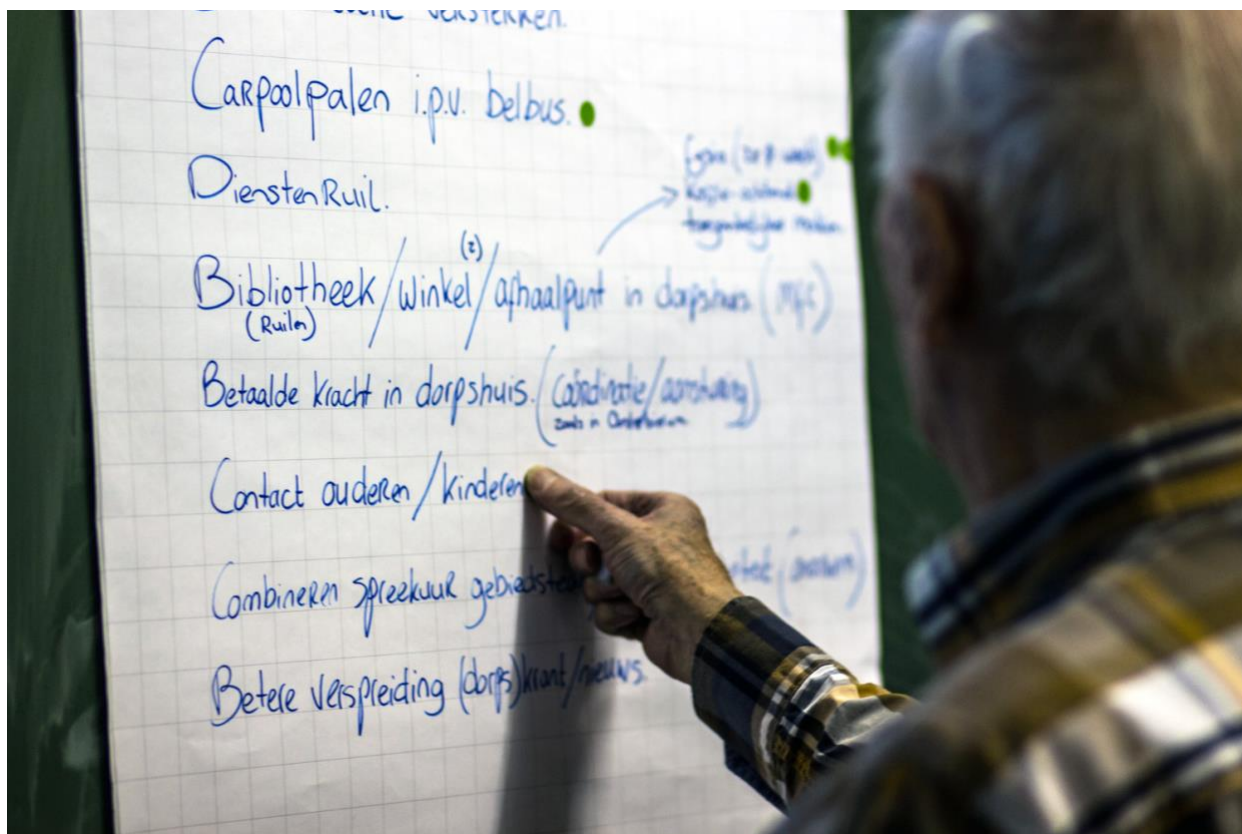 verstekken.
Carpoolpalen i.p.v. belbus.
DienstenRuil.
(2)
Bibliotheek/winkel/afhaalpunt in dorpshuis (MFC)
(Ruilen)
Betaalde kracht in dorpshuis. (Coördinatie/aansturing)
zoals in
Contact ouderen/kinderen
Combineren spreekuur
Betere verspreiding (dorps)krant/nieuws.